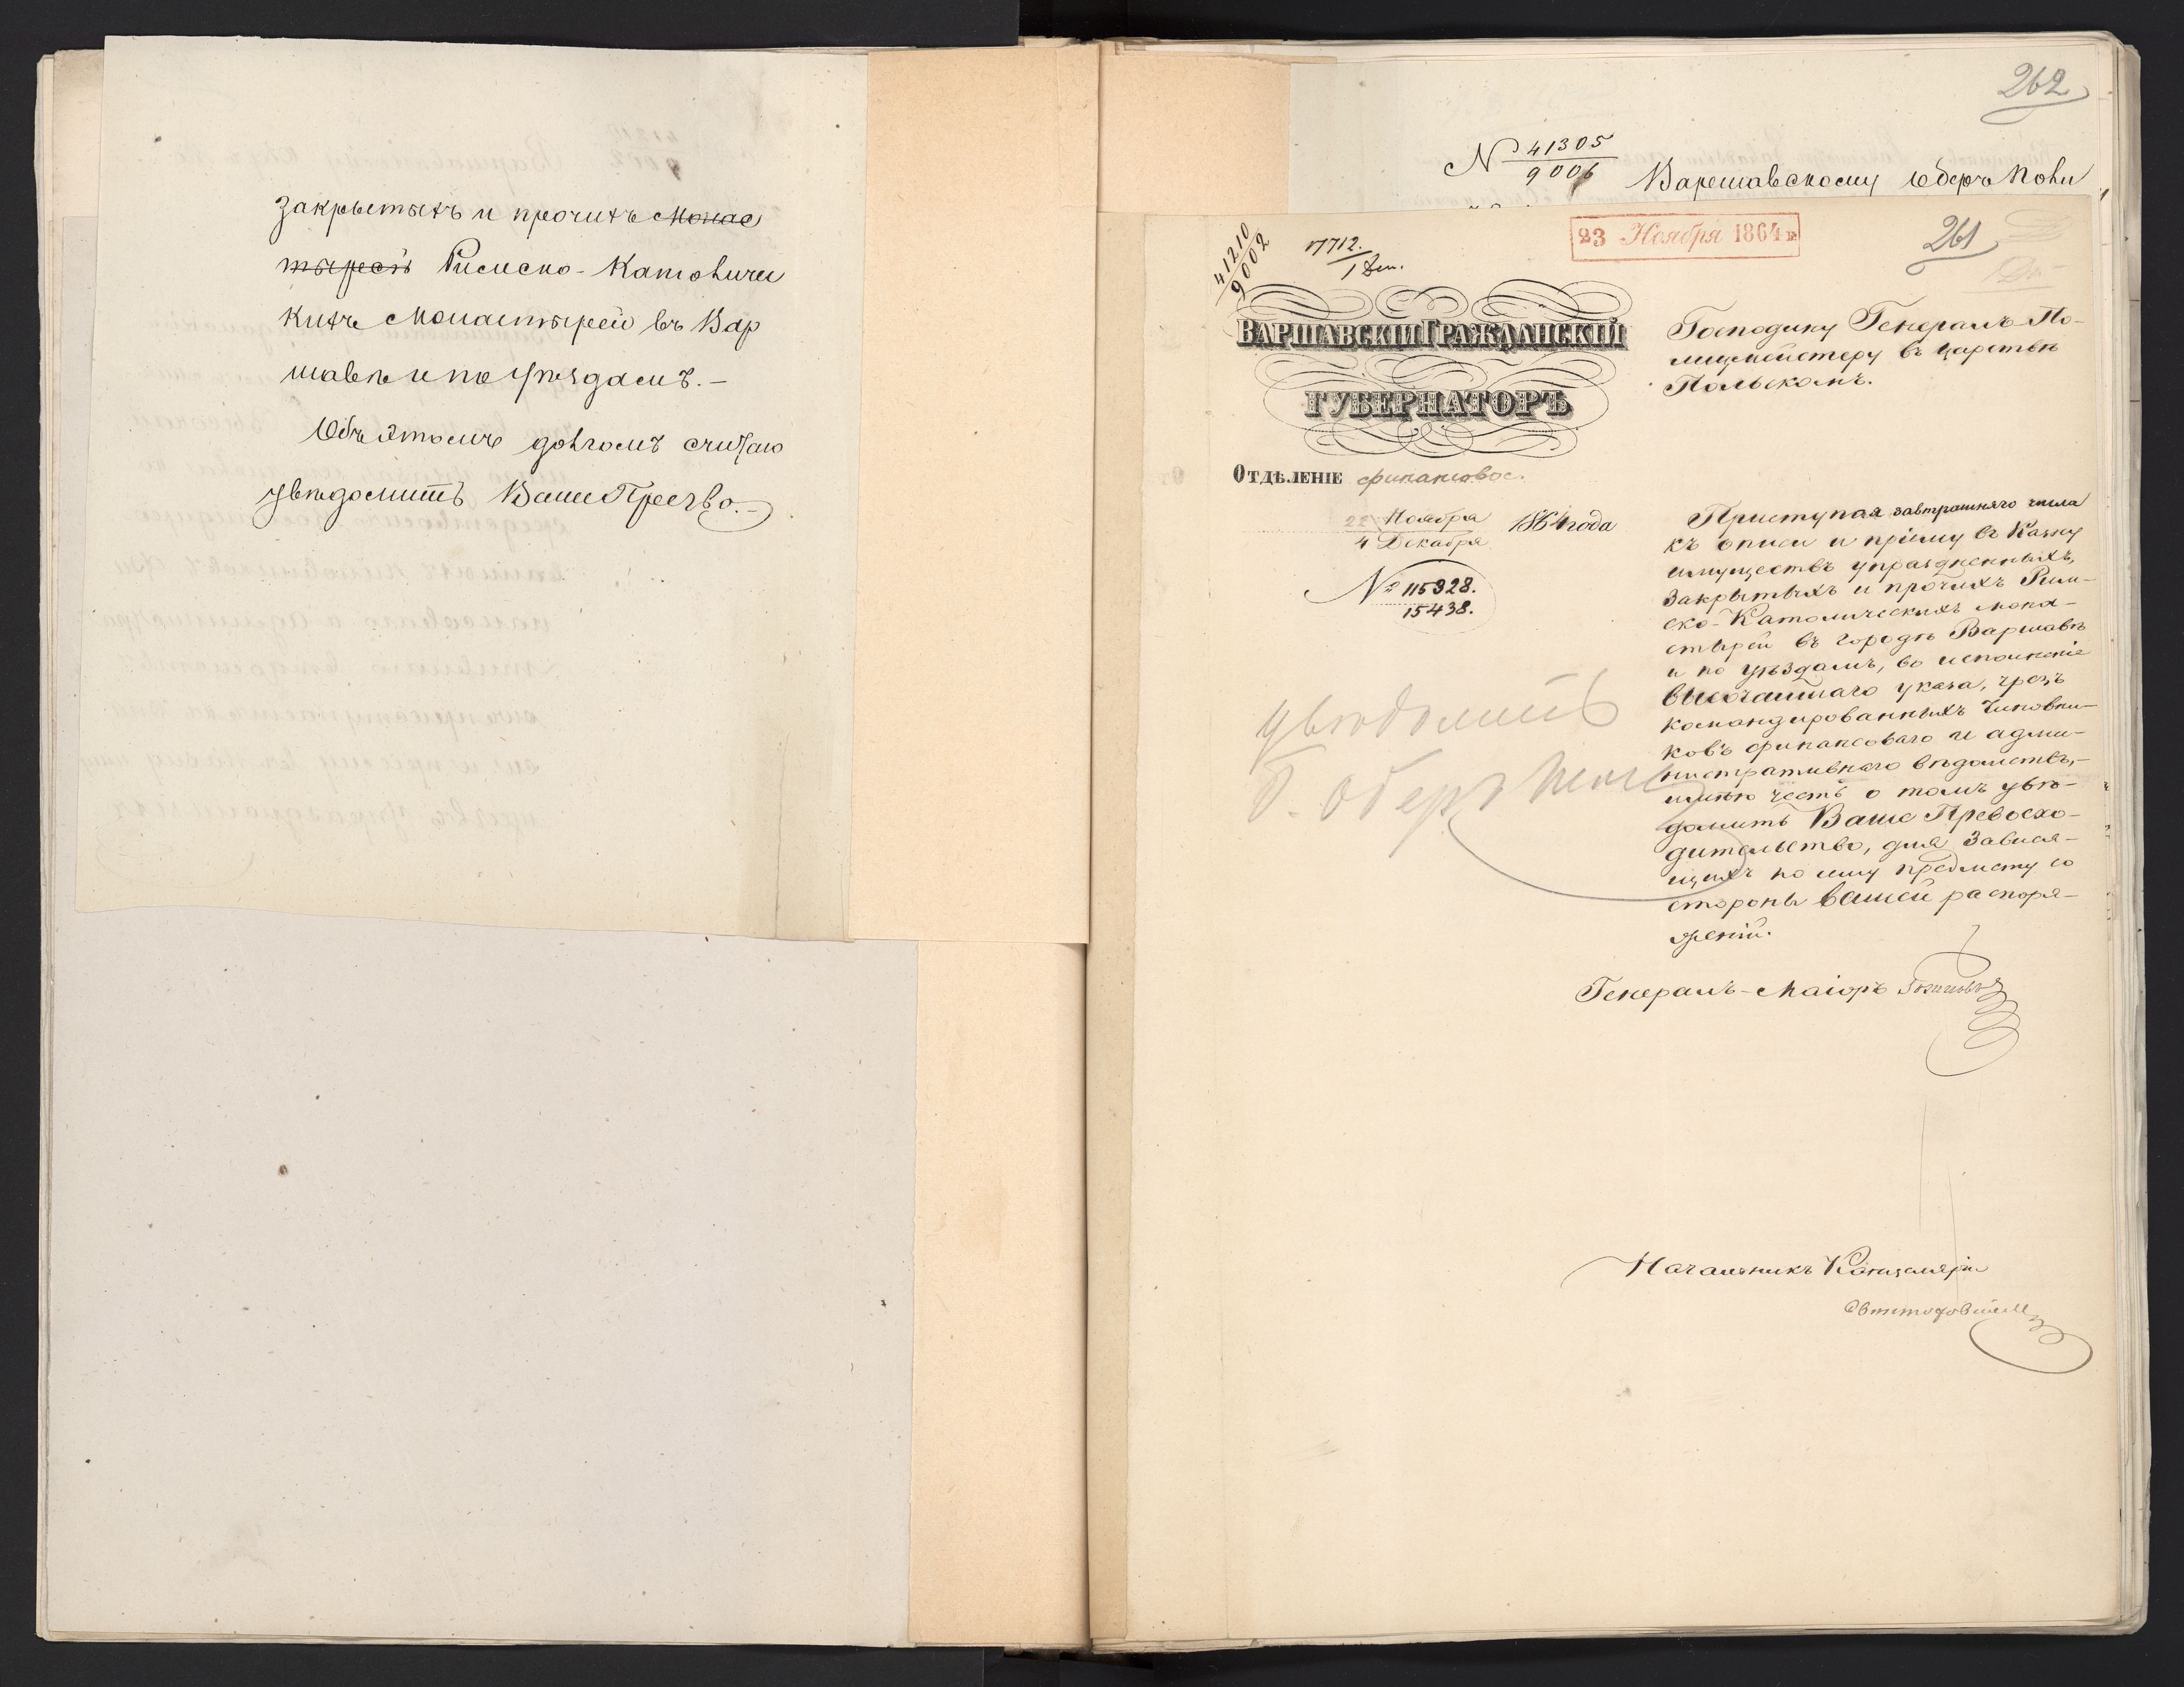 закрытыхъ и прочихъ Монас
тырей Римско-Католичес
кихъ Монастырей въ Вар
шавѣ и по Уѣздамъ.-
Объ этомъ долгомъ считаю
увѣдомить Ваше Пресчво.-
262
№ 41305
9006
Варшавскому Оберъ Поли
41210
9002
17712.
1 Дек.
23 Ноября 1864 г.
261
ВАРШАВСКІЙ ГРАЖДАНСКІЙ
ГУБЕРНАТОРЪ
ОТДѢЛЕНІЕ финансовое.
22 Ноября
4 Декабря
1864 года
№ 115928.
15438.
Господину Генералъ-По-
лицмейстеру въ Царствѣ
Польскомъ.
Приступая завтрашняго числа
къ описи и пріему въ Казну
имуществъ упраздненныхъ,
закрытыхъ и прочихъ Рим-
ско-Католическихъ мона-
стырей въ городѣ Варшавѣ
и по уѣздамъ, во исполненіе
Высочайшаго указа, чрезъ
командированныхъ Чиновни-
ковъ финансоваго и адми-
нистративнаго вѣдомствъ,-
имѣю честь о томъ увѣ-
домить Ваше Превосхо-
дительство, для Завися-
щихъ по сему предмету со
стороны Вашей распоря-
женій.
увѣдомить
Г. Оберъ
Генералъ-Маіоръ
Начальникъ Канцеляріи